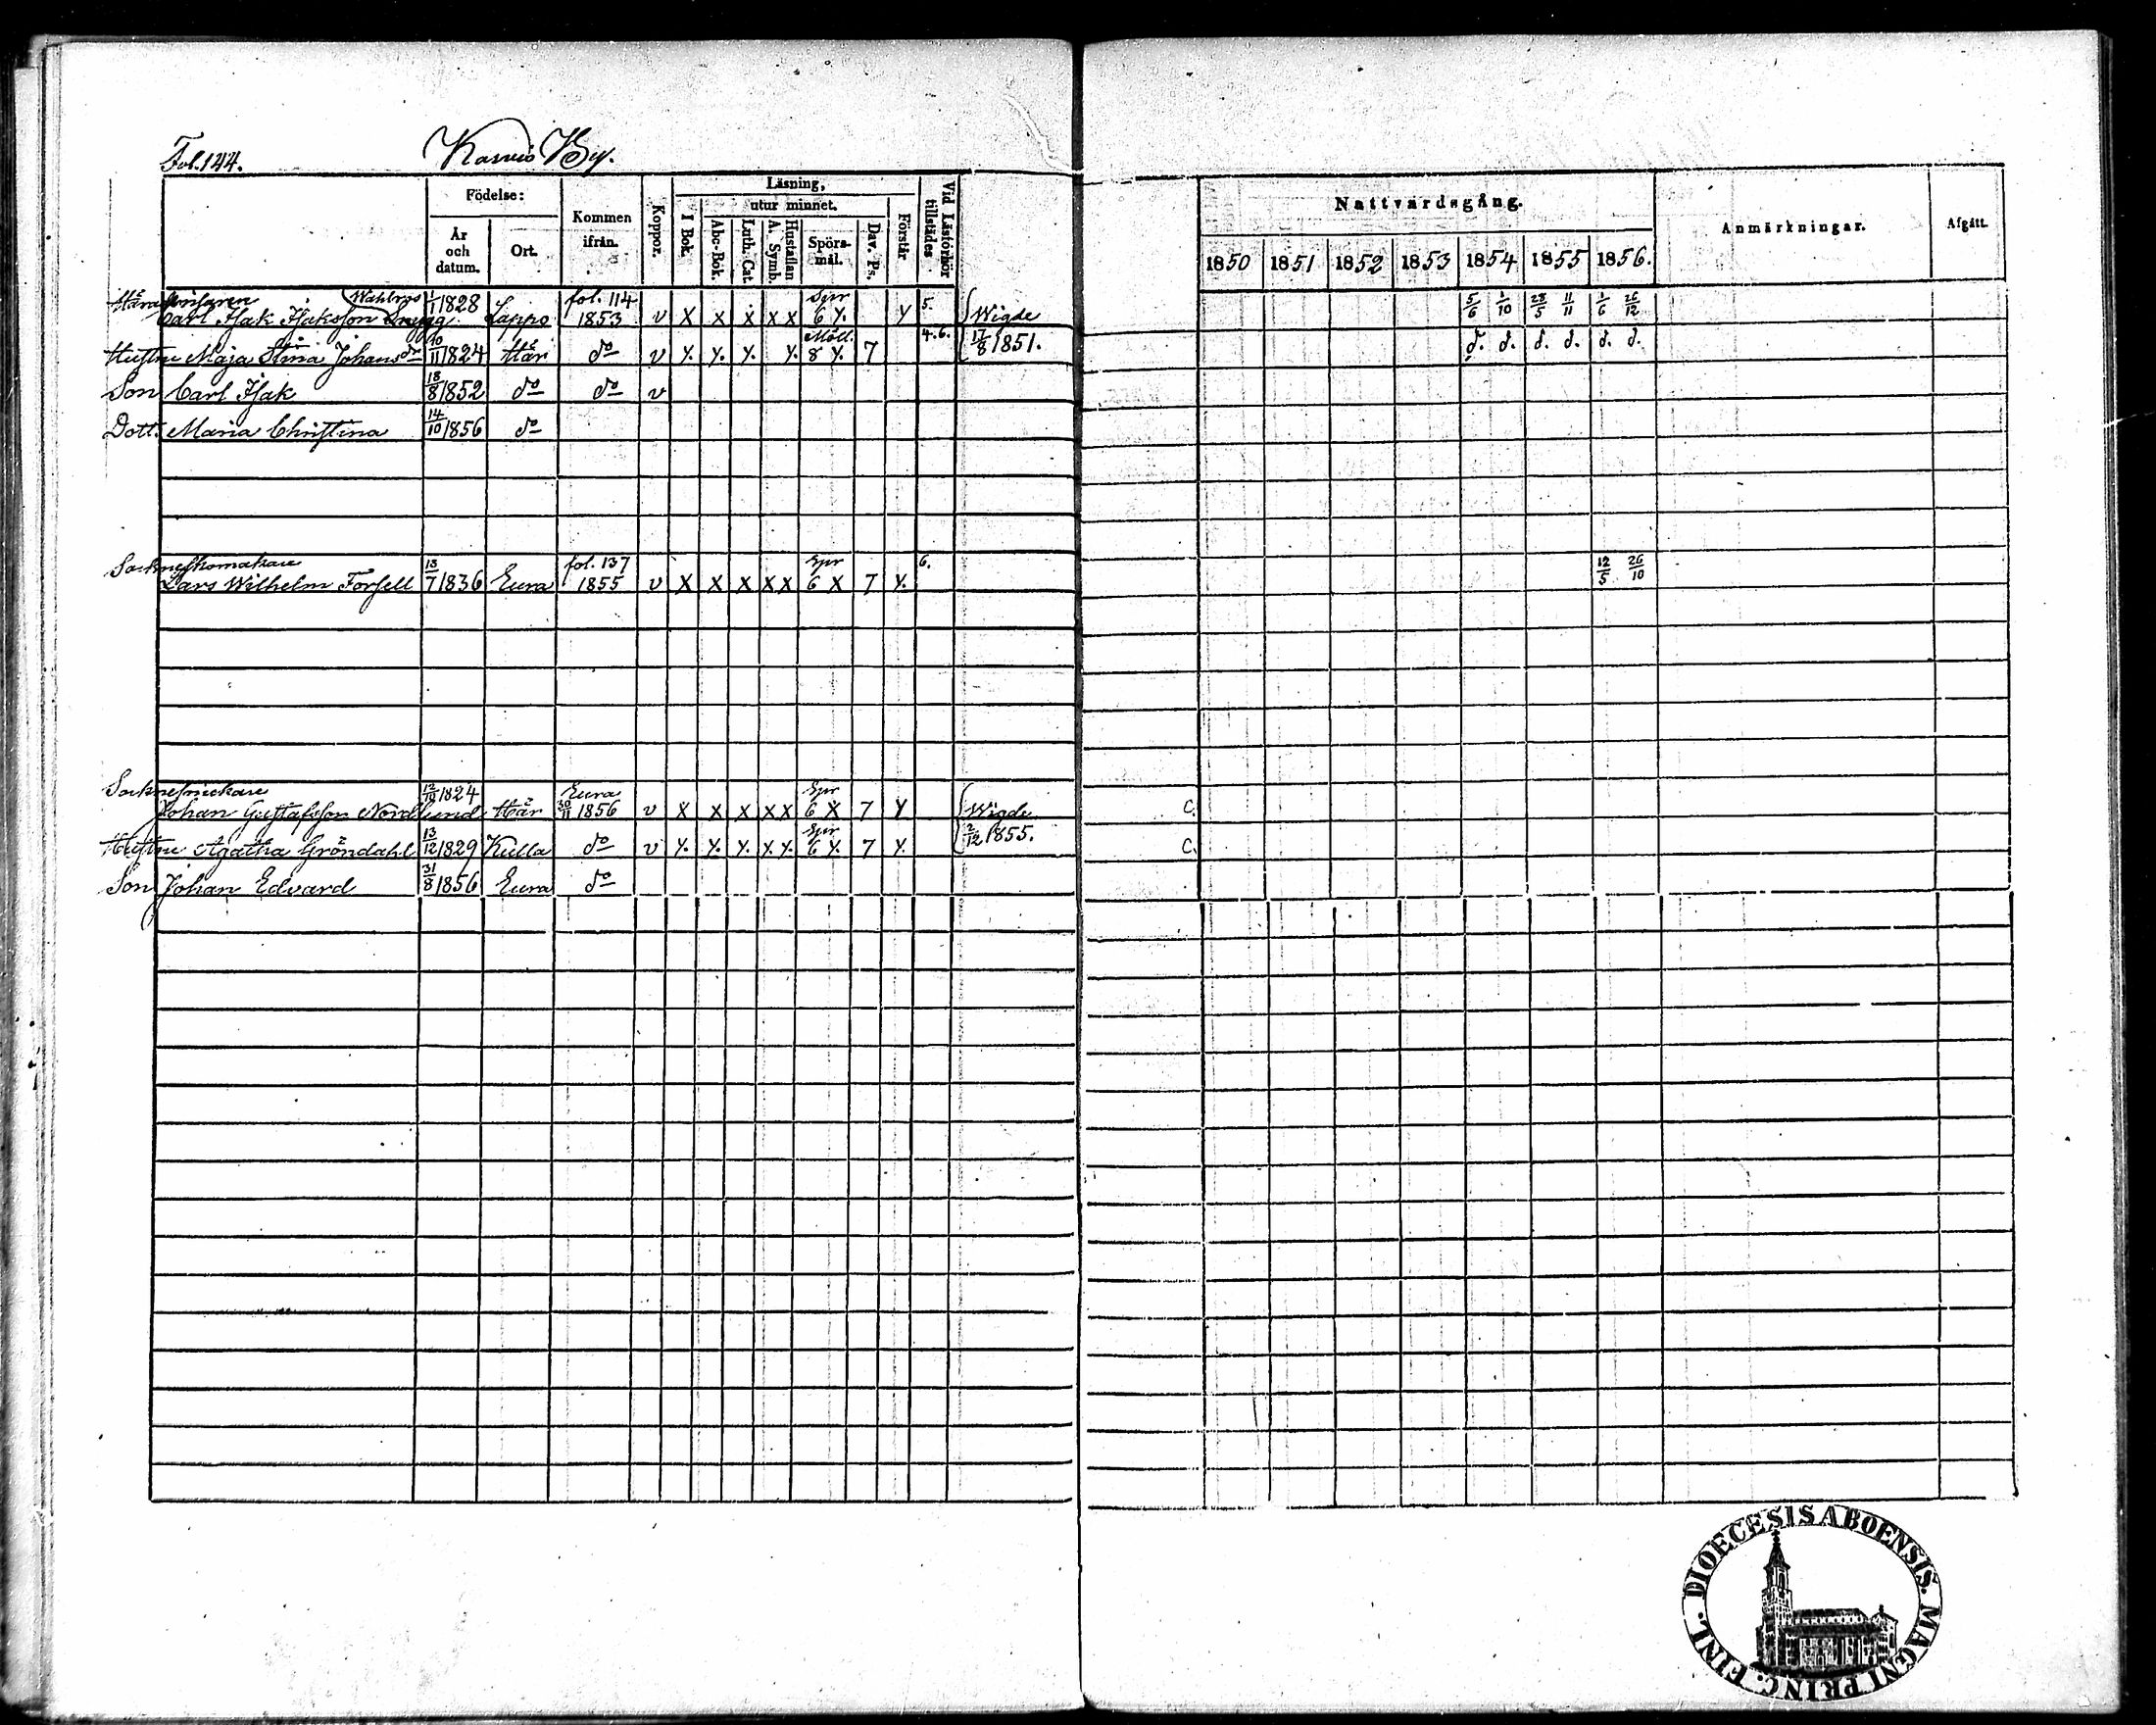 Fol. 144. By.
Födelse: År och datum. Ort. Kommen ifrån. Koppor. Läsning, I Bok. utur minnet. Abc-Bok. Luth. Cat. A. Symb. Hustaflan Spörsmål. Dav. Ps. Förstår Vid Läsförhör tillstädes
Nattvardsgång. 1850 1851 1852 1853 1854 1855 1856. Anmärkningar. Afgått.
Wahlroos 1/1 1828 fol. 114 Spr 5. 5/6 1/10 28/5 11/11 1/6 26/12
Carl Isak Isaksson Lappo 1853 v X X X X X 6 Y. Y Wigde
10/11 Möll. 4.6. 17/8 1851.
Hustru Maja Stina Johansdr 1824 Här do v Y. Y. Y. Y. 8 Y. 7 d. d. d. d. d. d.
Son Carl Isak 18/8 1852 do do v
Dott. Maria Christina 14/10 1856 do
Sockneskomakare 13/7 fol. 137 Spr 6. 12/5 26/10
Lars Wilhelm Forsell 1836 Eura 1855 v X X X X X 6 X 7 Y.
Sockne 12/12 1824 Eura Spr
Johan Gustafsson Nordlund Här 30/11 1856 v X X X X X 6 X 7 Y Wigde C.
13/12 Spr 2/12 1855.
Hustru Agatha Gröndahl 1829 Kulla do v Y. Y. Y. Y. Y. 6 Y. 7 Y. C.
Son Johan Edvard 31/8 1856 Eura do
DIOECESIS ABOENSIS. MAGNI PRINC. FINL.